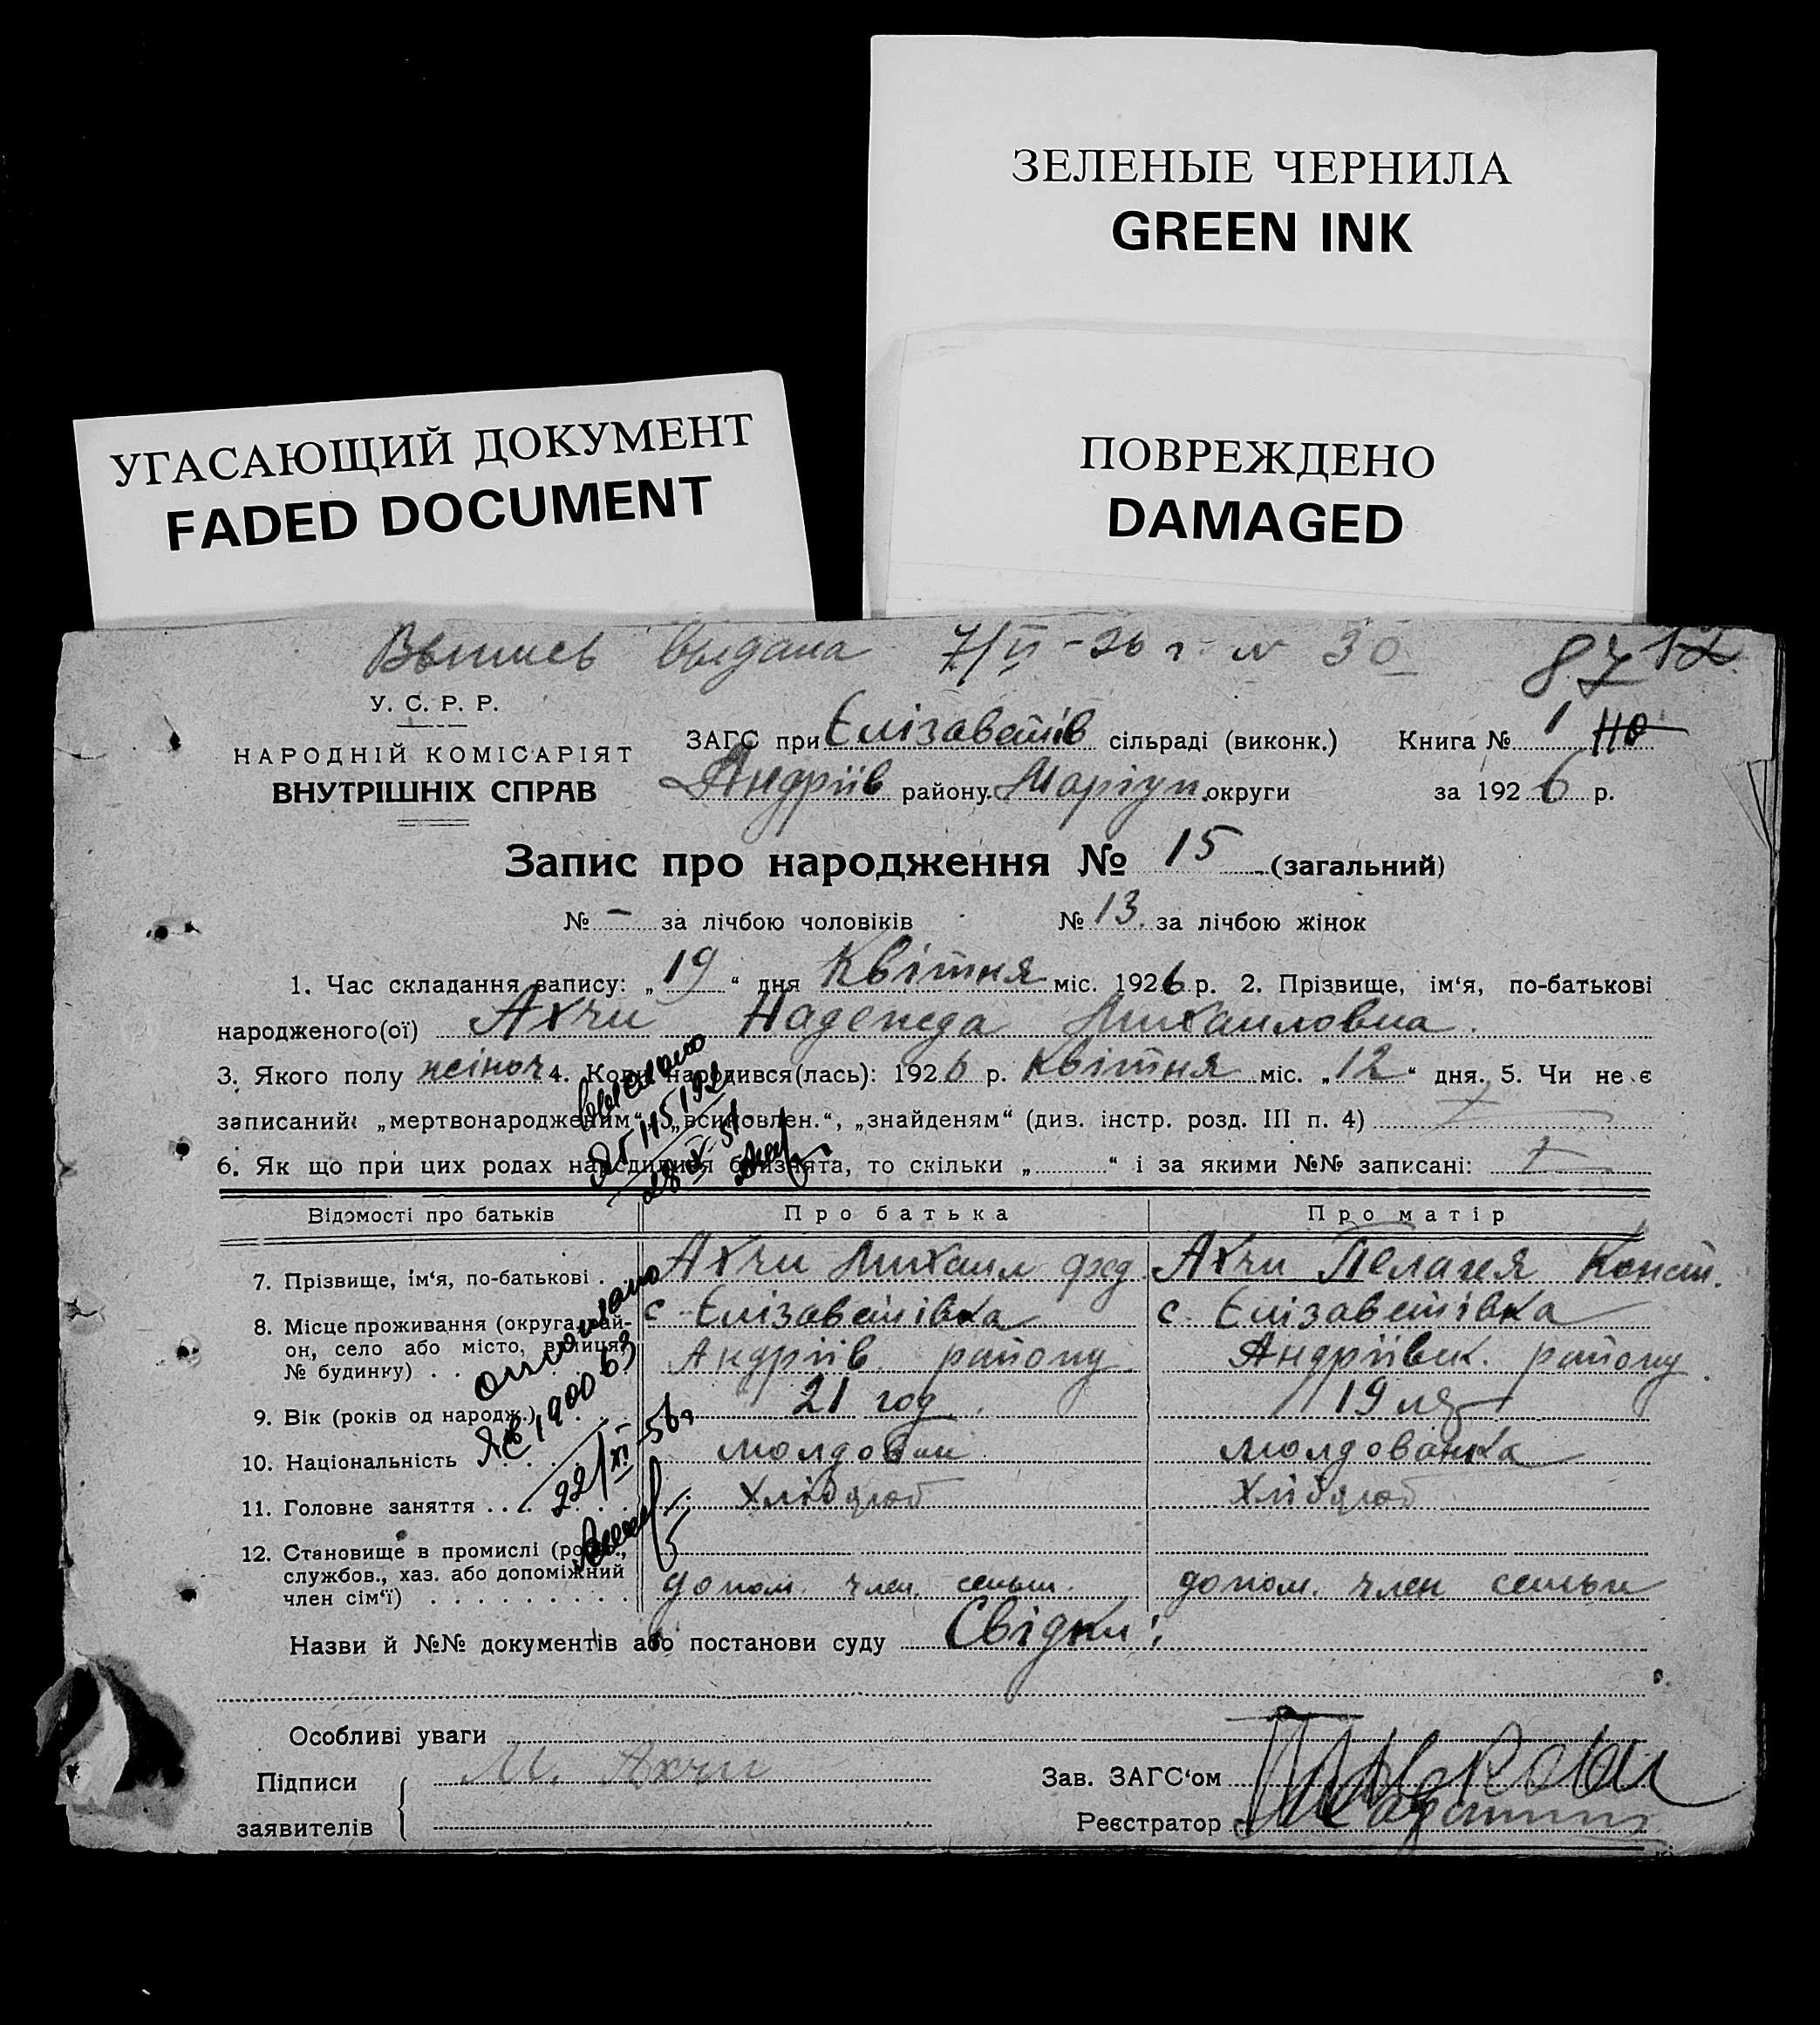 ЗЕЛЕНЫЕ ЧЕРНИЛА
GREEN INK
УГАСАЮЩИЙ ДОКУМЕНТ
FADED DOCUMENT
ПОВРЕЖДЕНО
DAMAGED
Выпись выдана 7/VI-26 г. № 30 87 12
У. С. Р. Р.
НАРОДНІЙ КОМІСАРІЯТ
ВНУТРІШНІХ СПРАВ
ЗАГС при Єлізаветів сільраді (виконк.) Книга № 1 110
Андріїв району Маріуп. округи за 1926 р.
Запис про народження № 15 (загальний)
№ – за лічбою чоловіків № 13 за лічбою жінок
1. Час складання запису: „19“ дня Квітня міс. 1926 р. 2. Прізвище, ім‘я, по-батькові
народженого(ої) Ахчи Надежда Михаиловна.
3. Якого полу жіноч 4. Коли народився(лась): 1926 р. Квітня міс. „12“ дня. 5. Чи не є
записаний: „мертвонародженим“, „всиновлен.“, „знайденям“ (див. інстр. розд. III п. 4)
6. Як що при цих родах народилися близнята, то скільки „ “ і за якими №№ записані:
Відомості про батьків Про батька Про матір
7. Прізвище, ім‘я, по-батькові . Ахчи Михаил Фед. Ахчи Пелагея Конст.
8. Місце проживання (округа, рай-
он, село або місто, вулиця,
№ будинку) . .
с. Єлізаветівка с. Єлізаветівка
Андріїв. району Андріївск. району.
9. Вік (років од народж.) 21 год. 19 лет
10. Національність молдован молдованка
11. Головне заняття . . . Хлібороб Хлібороб
12. Становище в промислі (робіт.,
службов., хаз. або допоміжний
член сім‘ї) . . . . . . . . .
допом. член. семьи. допом. член семьи
Назви й №№ документів або постанови суду Свідки:
Особливі уваги
Підписи М. Ахчи
заявителів
Зав. ЗАГС‘ом
Реєстратор
22/XI-56 г